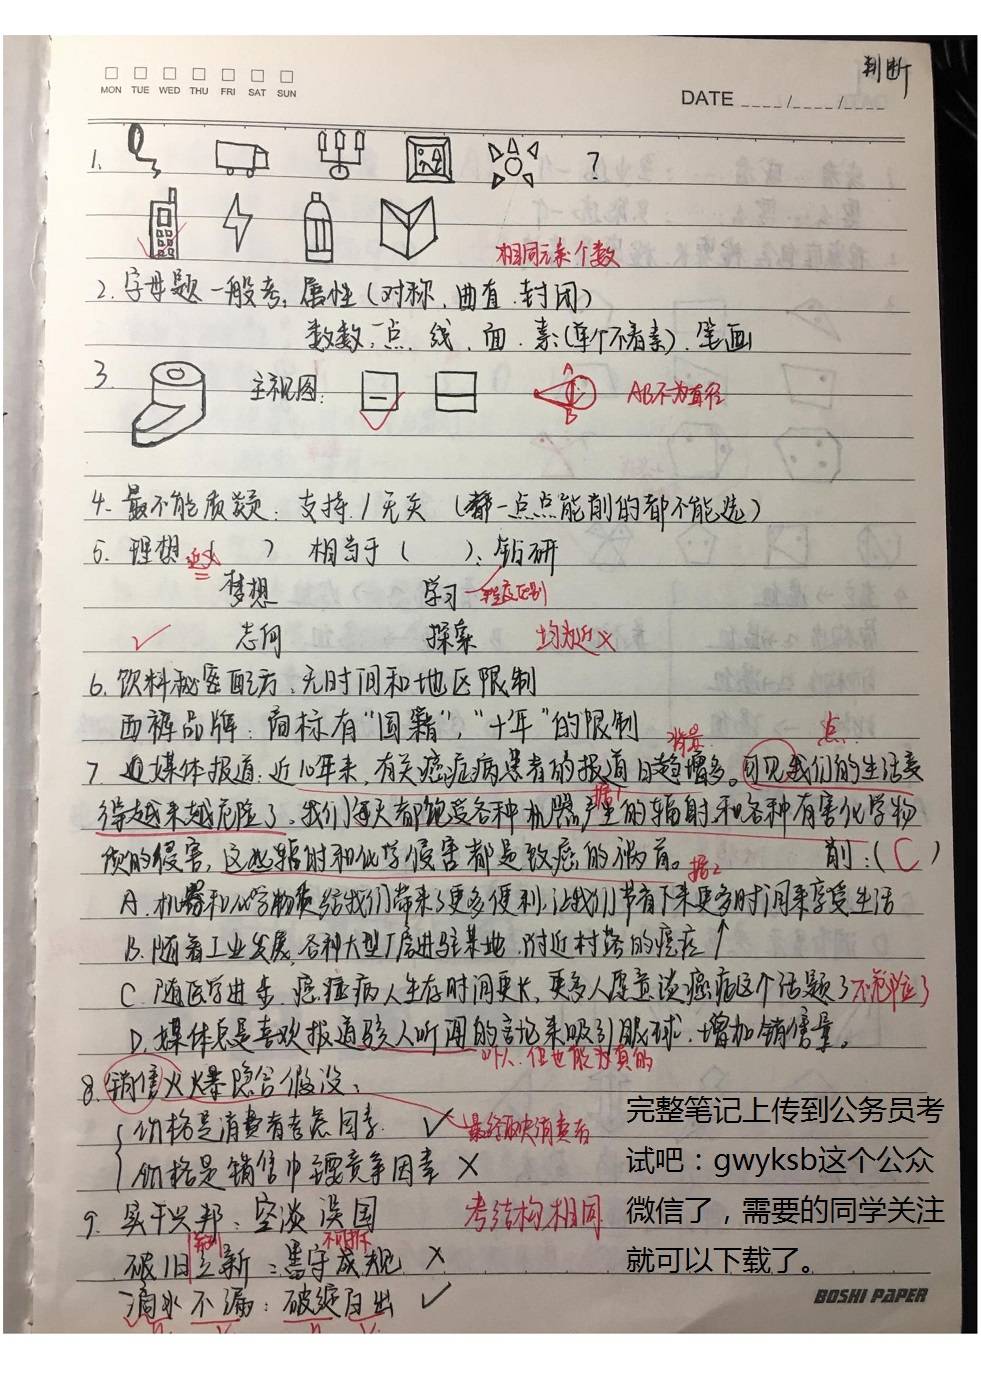 判断
MON TUE WED THU FRI SAT SUN
DATE ____/____/____
1. ?
相同元素个数
2. 字母题一般考：属性（对称、曲直、封闭）
数数：点、线、面、素（单个不看素）、笔画
3. 主视图： A B AB不为直径
4. 最不能质疑：支持/无关（一点点能削的都不能选）
5. 理想（ ）相当于（ ）：钻研
近义
梦想 学习 程度区别
志向 探索 均为近义
6. 饮料秘密配方：无时间和地区限制
西裤品牌：商标有“国籍”，“十年”的限制
背景 点
7. 媒体报道：近10年来，有关癌症病患者的报道日趋增多。可见我们的生活变
得越来越危险了。我们每天都饱受各种机器产生的辐射和各种有害化学物
据1
质的侵害，这些辐射和化学侵害都是致癌的祸首。 削：（C）
据2
A. 机器和化学物质给我们带来了更多便利，让我们节省下来更多时间来享受生活
B. 随着工业发展，各种大型厂房进驻某地，附近村落的癌症↑
C. 随医学进步，癌症病人生存时间更长，更多人愿意谈癌症这个话题了 不危险了
D. 媒体总是喜欢报道骇人听闻的言论来吸引眼球，增加销售量。
吓人，但也能为真的
8. 销售火爆隐含假设：
价格是消费者考虑因素 ✓ 最终取决消费者
价格是销售中主要竞争因素 ×
9. 实干兴邦：空谈误国 考结构相同
并列 不可拆
破旧立新：墨守成规 ×
滴水不漏：破绽百出 ✓
n. v. n. v.
完整笔记上传到公务员考
试吧：gwyksb这个公众
微信了，需要的同学关注
就可以下载了。
BOSHI PAPER